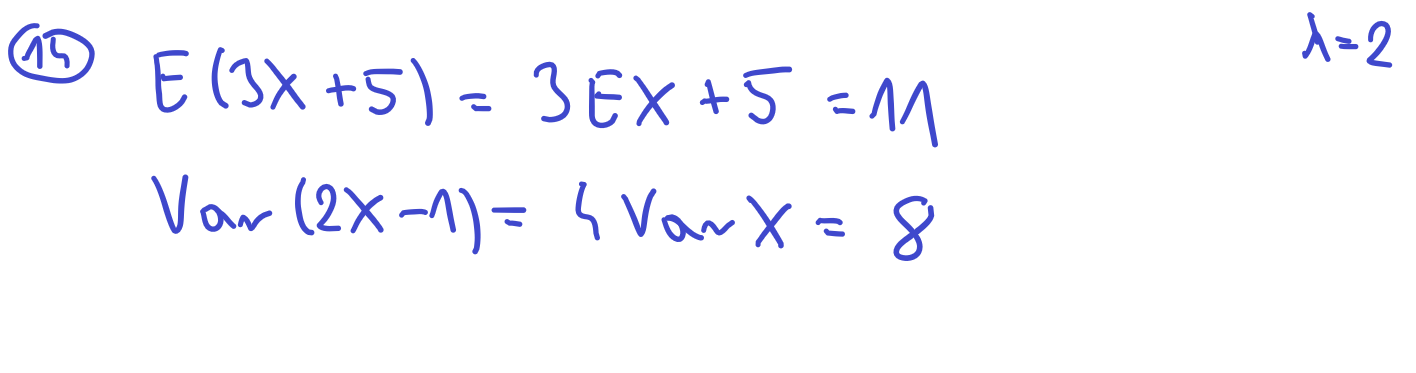 14 E(3X+5) = 3EX+5 = 11 λ=2
Var(2X-1) = 4 Var X = 8